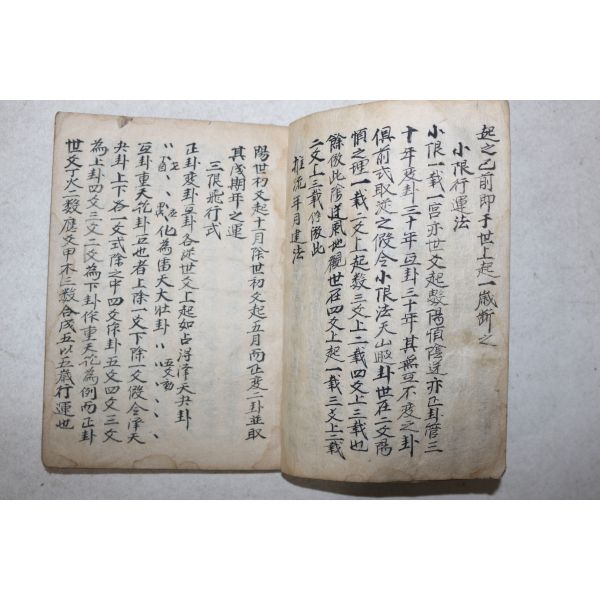 起之已前即于世上起一歲斷之
小限行運法
小限一載一宮亦世爻起數陽順陰逆亦正卦管三
十年変卦三十年互卦三十年其無互不変之卦
俱前式取從之假令小限法天山遯卦世在二爻陽
順之理一載二爻上起数三爻上二載四爻上三載也
餘倣此陰逆風地觀世在四爻上起一載三爻上二載
二爻上三載作倣此
推流年月建法
陽世初爻起十一月陰世初爻起五月而正変二卦並取
其戌期年之運
三限飛行式
正卦変卦互卦各從世爻上起如占得澤天夬卦
化為雷天大壮卦
互卦重天乾卦互也者上除一爻下除一爻假令澤天
夬卦上下各一爻式除之中四爻作卦五爻四爻三爻
為上卦四爻三爻二爻為下卦作重天乾為例而正卦
世爻丁火二数應爻甲木三数合成五以五歲行運也